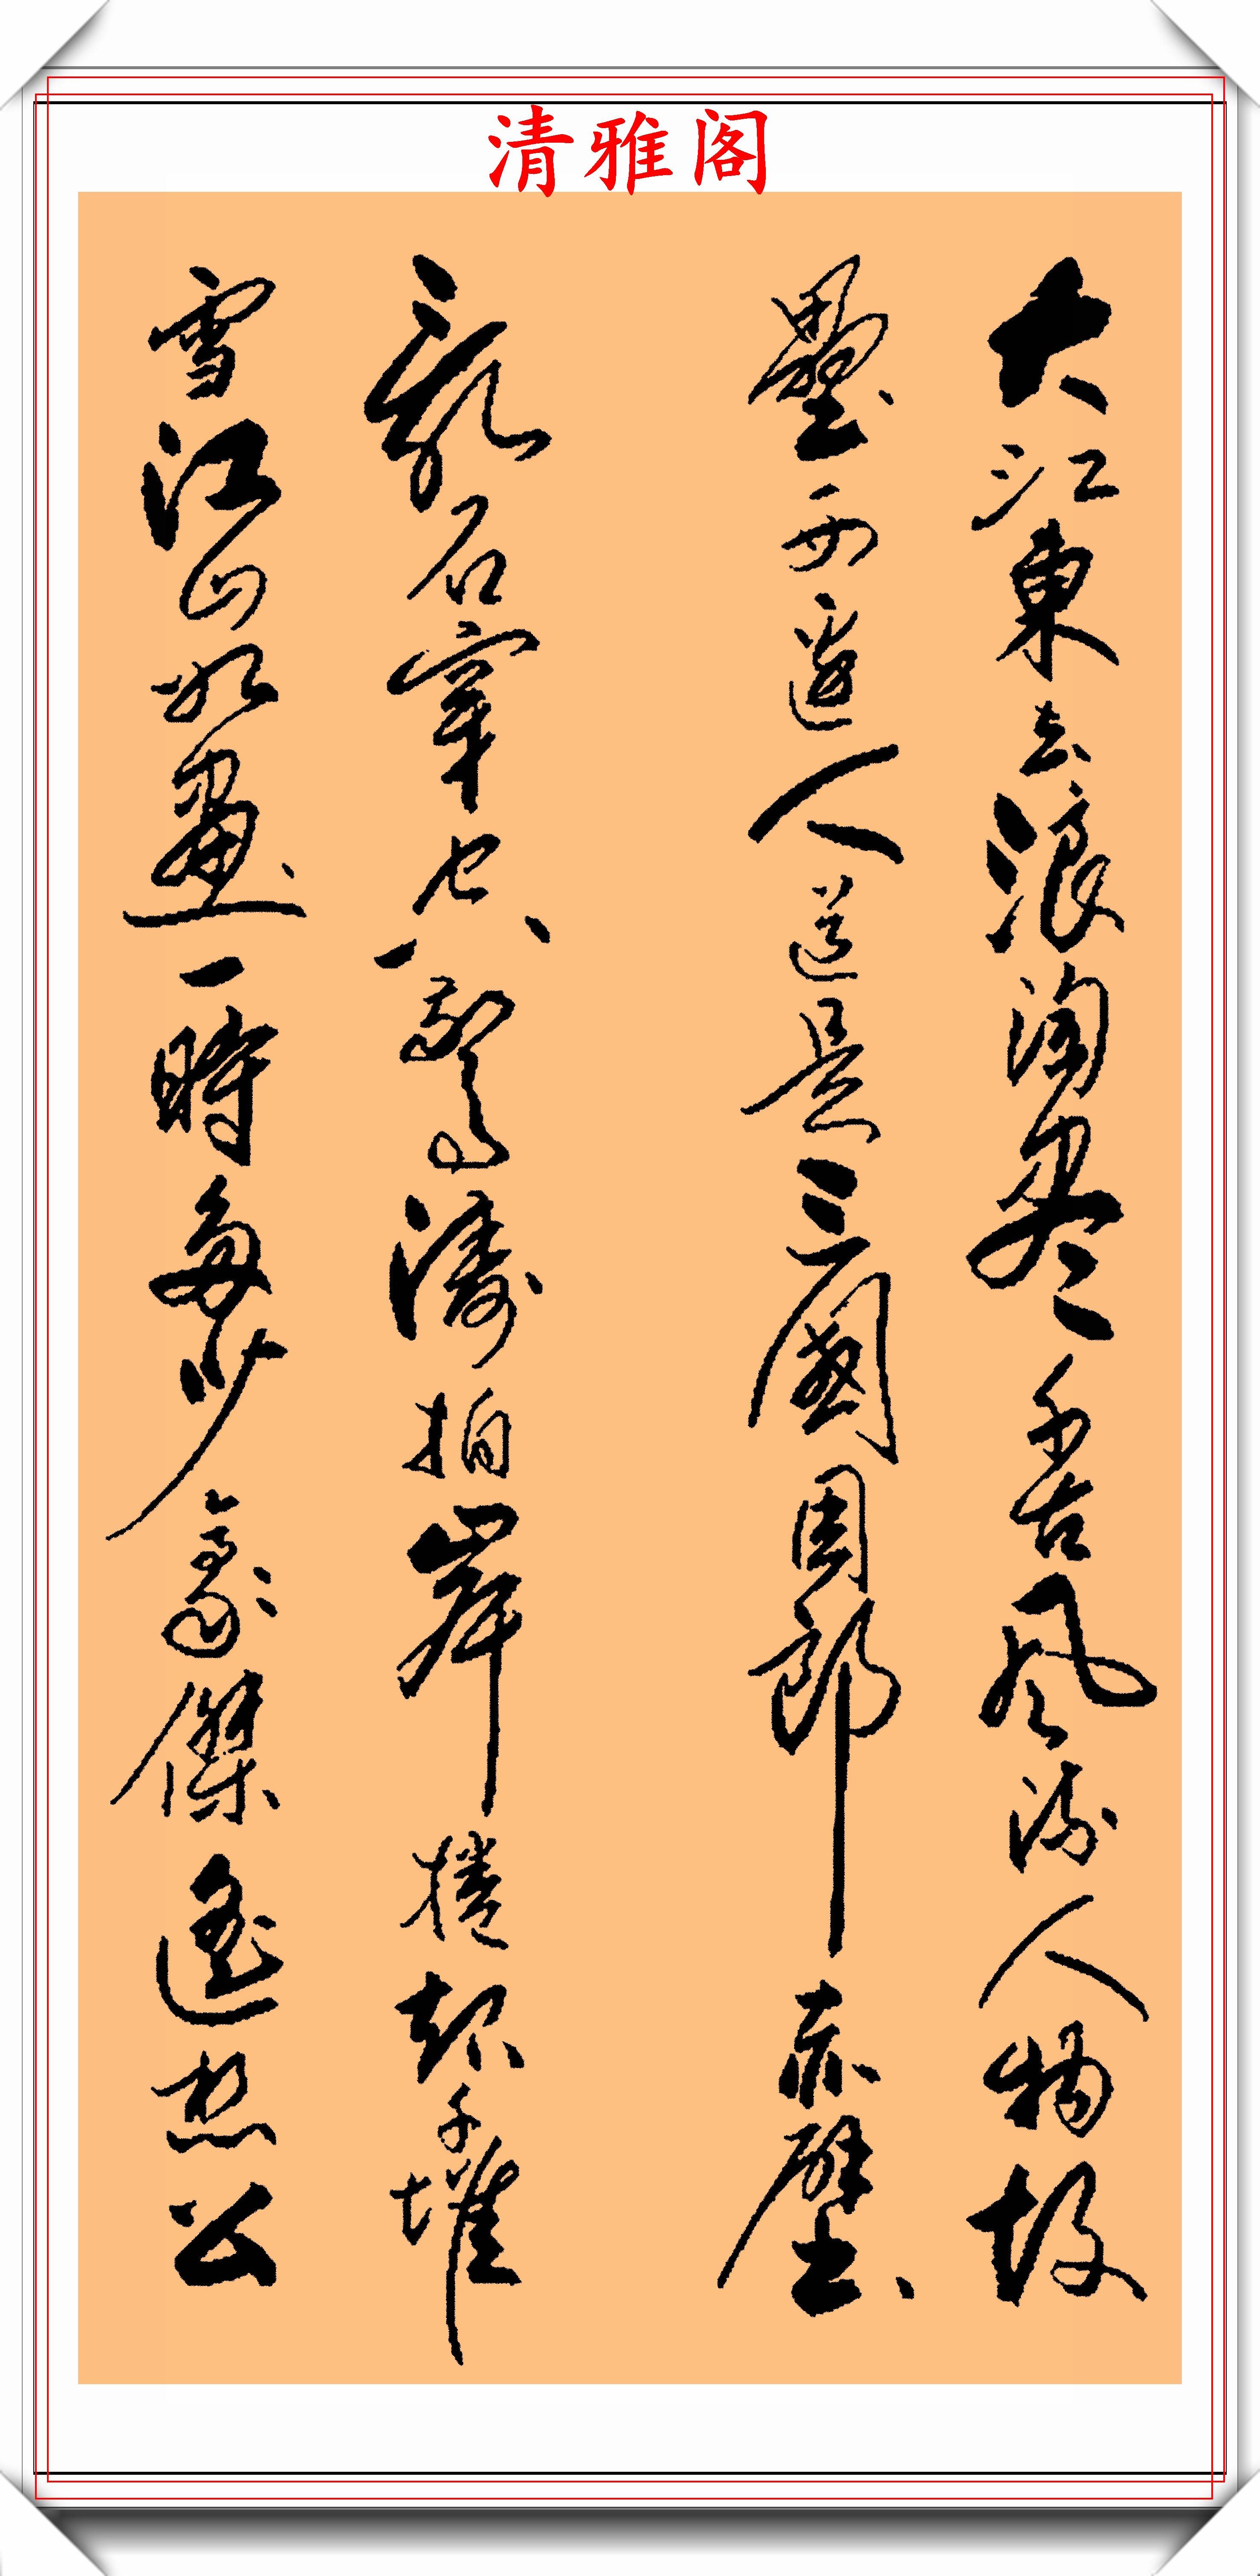 清雅阁
大江東去浪淘尽千古風流人物故
壘西邊人道是三國周郎赤壁
亂石穿空驚濤拍岸捲起千堆
雪江山如畫一時多少豪傑遙想公